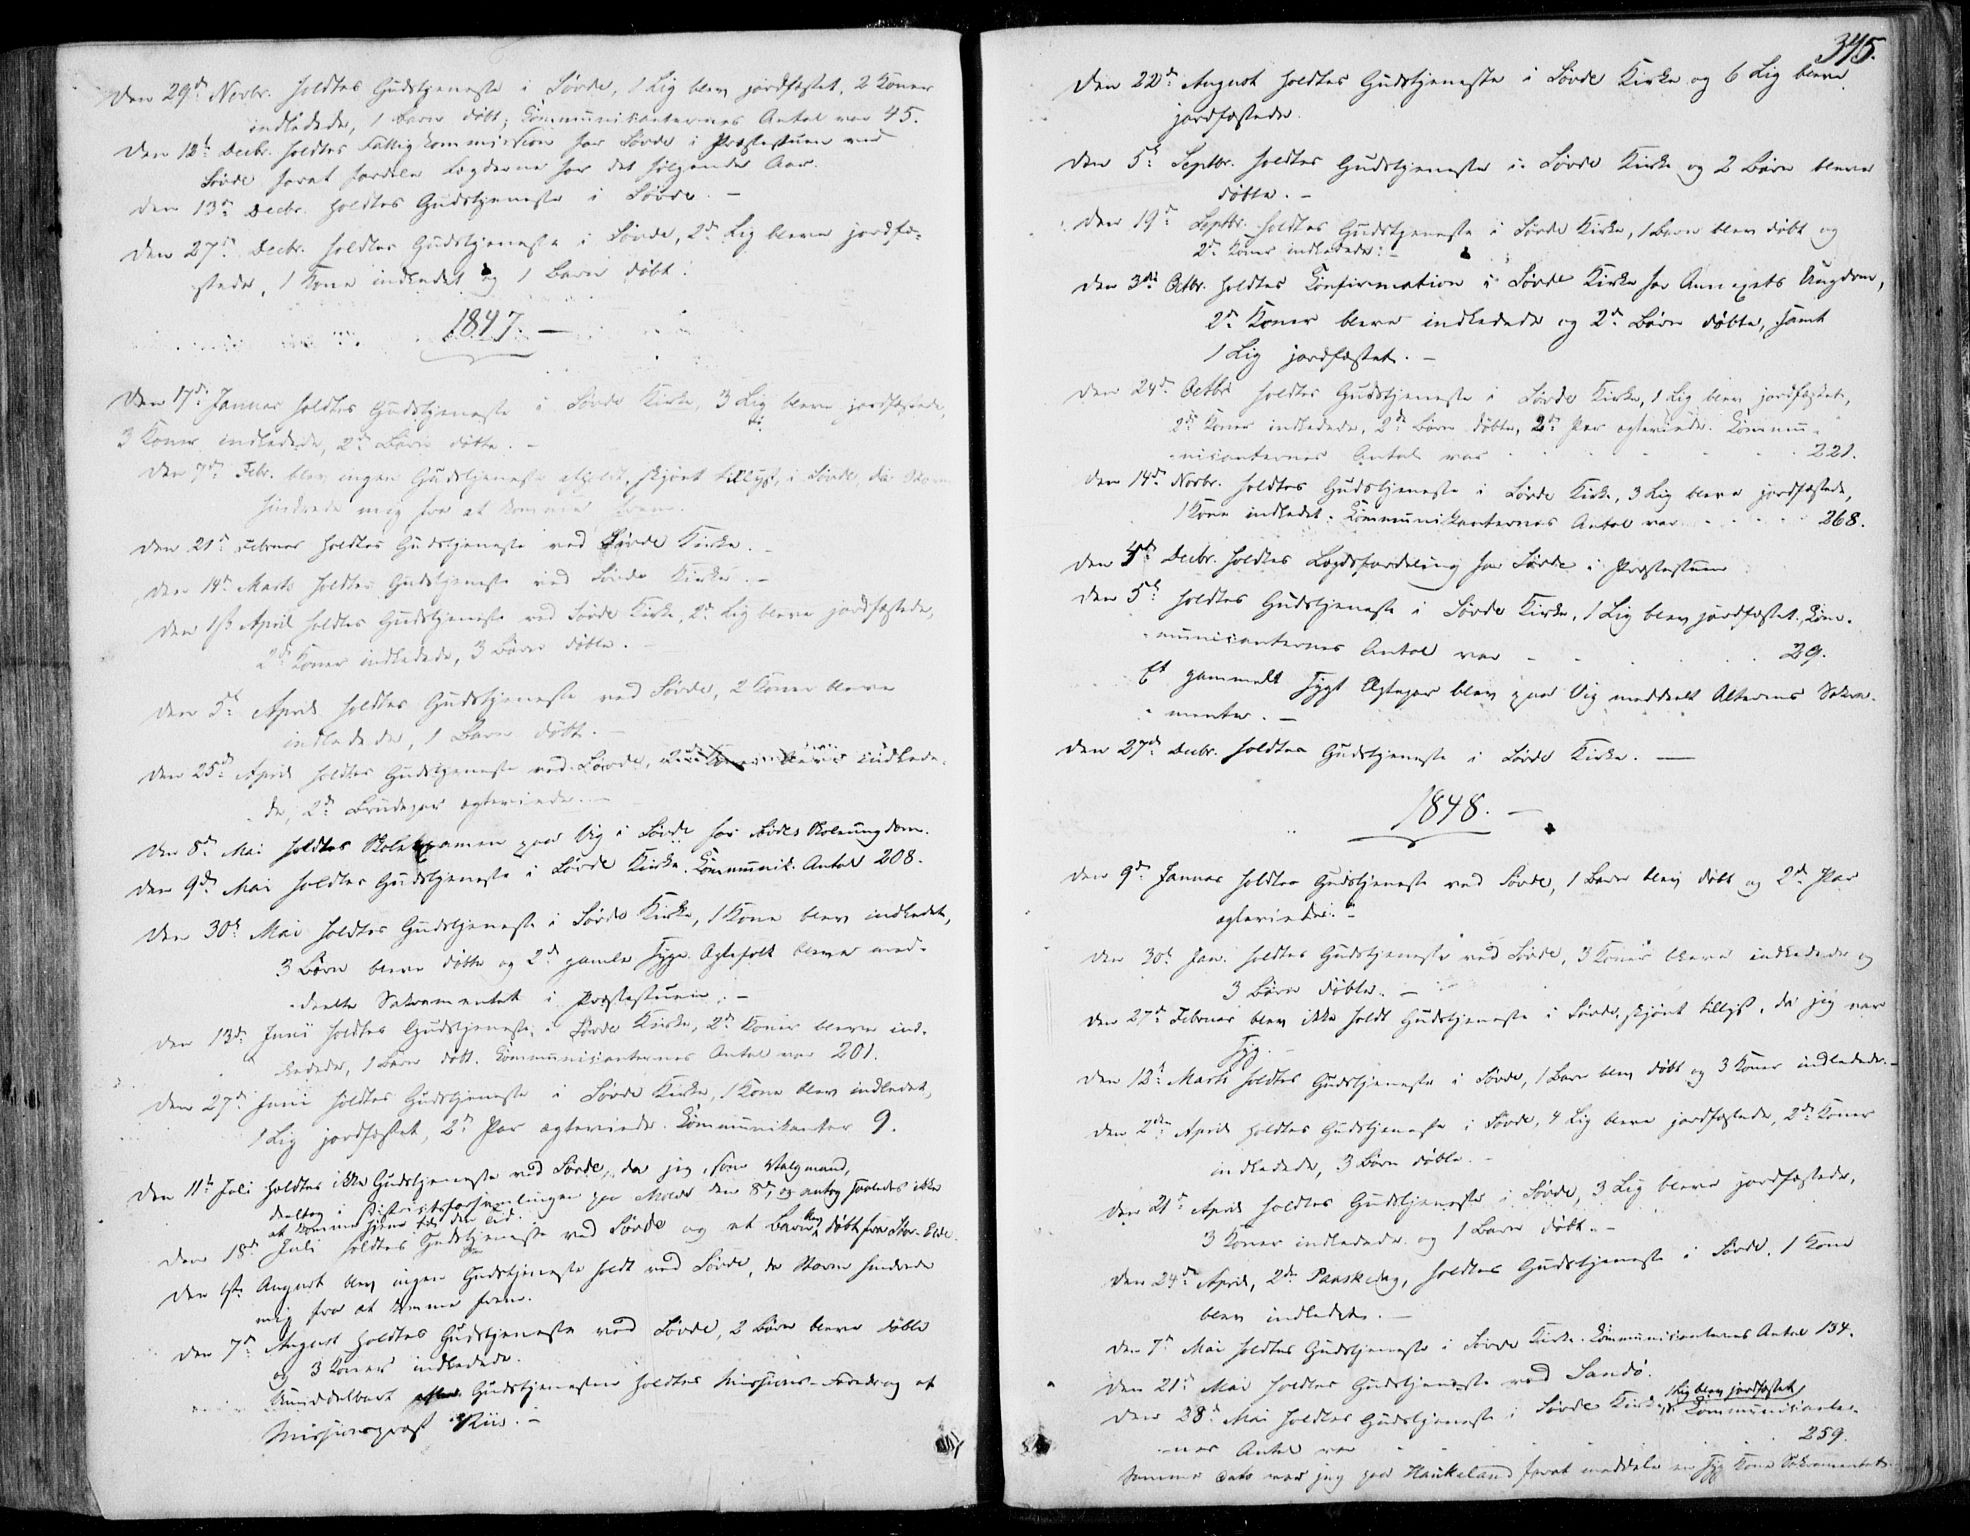 Den 29de Novbr. holdtes Gudstjeneste i Søvde, 1 Lig blev jordfæstet, 2 Koner
indledede, 1 Barn døbt, Communikanternes Antal var 45.
Den 12te Decbr. holdtes Fattigkommission for Søvde i Præstestuen ved
Søvde forat fordele Lægderne for det følgende Aar.
Den 13de Decbr. holdtes Gudstjeneste i Søvde. –
Den 27de Decbr. holdtes Gudstjeneste i Søvde, 2de Lig bleve jordfæ-
stede, 1 Kone indledet og 1 Barn døbt.
1847. –
Den 17de Januar holdtes Gudstjeneste i Søvde Kirke, 3 Lig bleve jordfæstede,
3 Koner indledede, 2de Børn døbte. –
Den 7de Febr. blev ingen Gudstjeneste afholdt, skjønt tillyst, i Søvde, da Storm
hindrede mig fra at komme frem.
Den 21de Februar holdtes Gudstjeneste ved Søvde Kirke. –
Den 14de Marts holdtes Gudstjeneste ved Søvde Kirke. –
Den 1ste April holdtes Gudstjeneste ved Søvde Kirke, 2de Lig bleve jordfæstede,
2de Koner indledede, 3 Børn døbte. –
Den 5te April holdtes Gudstjeneste ved Søvde, 2 Koner bleve
indledede, 1 Barn døbt. –
Den 25de April holdtes Gudstjeneste ved Søvde, 2de Koner bleve indlede-
de, 2de Brudepar ægteviede. –
Den 8de Mai holdtes Skoleexamen paa Vig i Søvde for Søvdes Skoleungdom.
Den 9de Mai holdtes Gudstjeneste i Søvde Kirke. Kommunik. Antal 208.
Den 30te Mai holdtes Gudstjeneste i Søvde Kirke, 1 Kone blev indledet,
3 Børn bleve døbte og 2de gamle syge Ægtefolk bleve med-
deelte Sakramentet i Præstestuen. –
Den 13de Juni holdtes Gudstjeneste i Søvde Kirke, 2de Koner bleve ind-
ledede, 1 Barn døbt. Communicanternes Antal var 201.
Den 27de Juni holdtes Gudstjeneste i Søvde Kirke, 1 Kone blev indledet,
1 Lig jordfæstet, 2de Par ægteviede. Kommunikanter 9.
Den 11te Juli holdtes ikke Gudstjeneste ved Søvde, da jeg, som Valgmand,
deeltog i Distriktsforsamlingen paa Molde den 8de, og antog saaledes ikke
at komme hjem til den Tid.
Den 18de Juli holdtes Gudstjeneste ved Søvde og et Barn blev døbt fra Stor-Eide.
Den 1ste August blev ingen Gudstjeneste holdt ved Søvde, da Storm hindrede
mig fra at komme frem.
Den 7de August holdtes Gudstjeneste ved Søvde, 2 Børn bleve døbte
og 3 Koner indledede.
Umiddelbart efter Gudstjenesten holdtes Missions-Foredrag af
Missionspræst Riis. –
345.
Den 22de August holdtes Gudstjeneste i Søvde Kirke og 6 Lig bleve
jordfæstede.
Den 5te Septbr. holdtes Gudstjeneste i Søvde Kirke og 2 Børn bleve
døbte. –
Den 19de Septbr. holdtes Gudstjeneste i Søvde Kirke, 1 Barn blev døbt og
2de Koner indledede. –
Den 3die Octbr. holdtes Confirmation i Søvde Kirke for Annexets Ungdom,
2de Koner bleve indledede og 2de Børn døbte, samt
1 Lig jordfæstet. –
Den 24de Octbr. holdtes Gudstjeneste i Søvde Kirke, 1 Lig blev jordfæstet,
2de Koner indledede, 2de Børn døbte, 2de Par ægteviede. Commu-
nicanternes Antal var 221.
Den 14de Novbr. holdtes Gudstjeneste i Søvde Kirke, 3 Lig bleve jordfæstede,
1 Kone indledet. Communikanternes Antal var 268.
Den 4de Decbr. holdtes Lægdsfordeling for Søvde i Præstestuen
Den 5te holdtes Gudstjeneste i Søvde Kirke, 1 Lig blev jordfæstet. Com-
municanternes Antal var 29.
Et gammelt sygt Ægtepar blev paa Vig meddeelt Alterens Sakra-
mente. –
Den 27de Decbr. holdtes Gudstjeneste i Søvde Kirke. –
1848. –
Den 9de Januar holdtes Gudstjeneste ved Søvde, 1 Barn blev døbt og 2de Par
ægteviede. –
Den 30te Jan. holdtes Gudstjeneste ved Søvde, 3 Koner bleve indledede og
3 Børn døbte. –
Den 27de Februar blev ikke holdt Gudstjeneste i Søvde, skjønt tillyst, da jeg var
syg. –
Den 12te Marts holdtes Gudstjeneste i Søvde, 1 Barn blev døbt og 3 Koner indledede. –
Den 2den April holdtes Gudstjeneste i Søvde, 4 Lig bleve jordfæstede, 2de Koner
indledede, 3 Børn døbte. –
Den 21de April holdtes Gudstjeneste i Søvde, 3 Lig bleve jordfæstede,
3 Koner indledede og 1 Barn døbt. –
Den 24de April, 2den Paaskedag, holdtes Gudstjeneste i Søvde. 1 Kone
blev indledet. –
Den 7de Mai holdtes Gudstjeneste i Søvde Kirke. Communicanternes Antal 154.
Den 21de Mai holdtes Gudstjeneste ved Sandø.
Den 28de Mai holdtes Gudstjeneste i Søvde Kirke, 1 Lig blev jordfæstet, Communicanter-
nes Antal var 259.
Samme Dato var jeg paa Haukeland forat meddele en syg Kone Sakramentet.